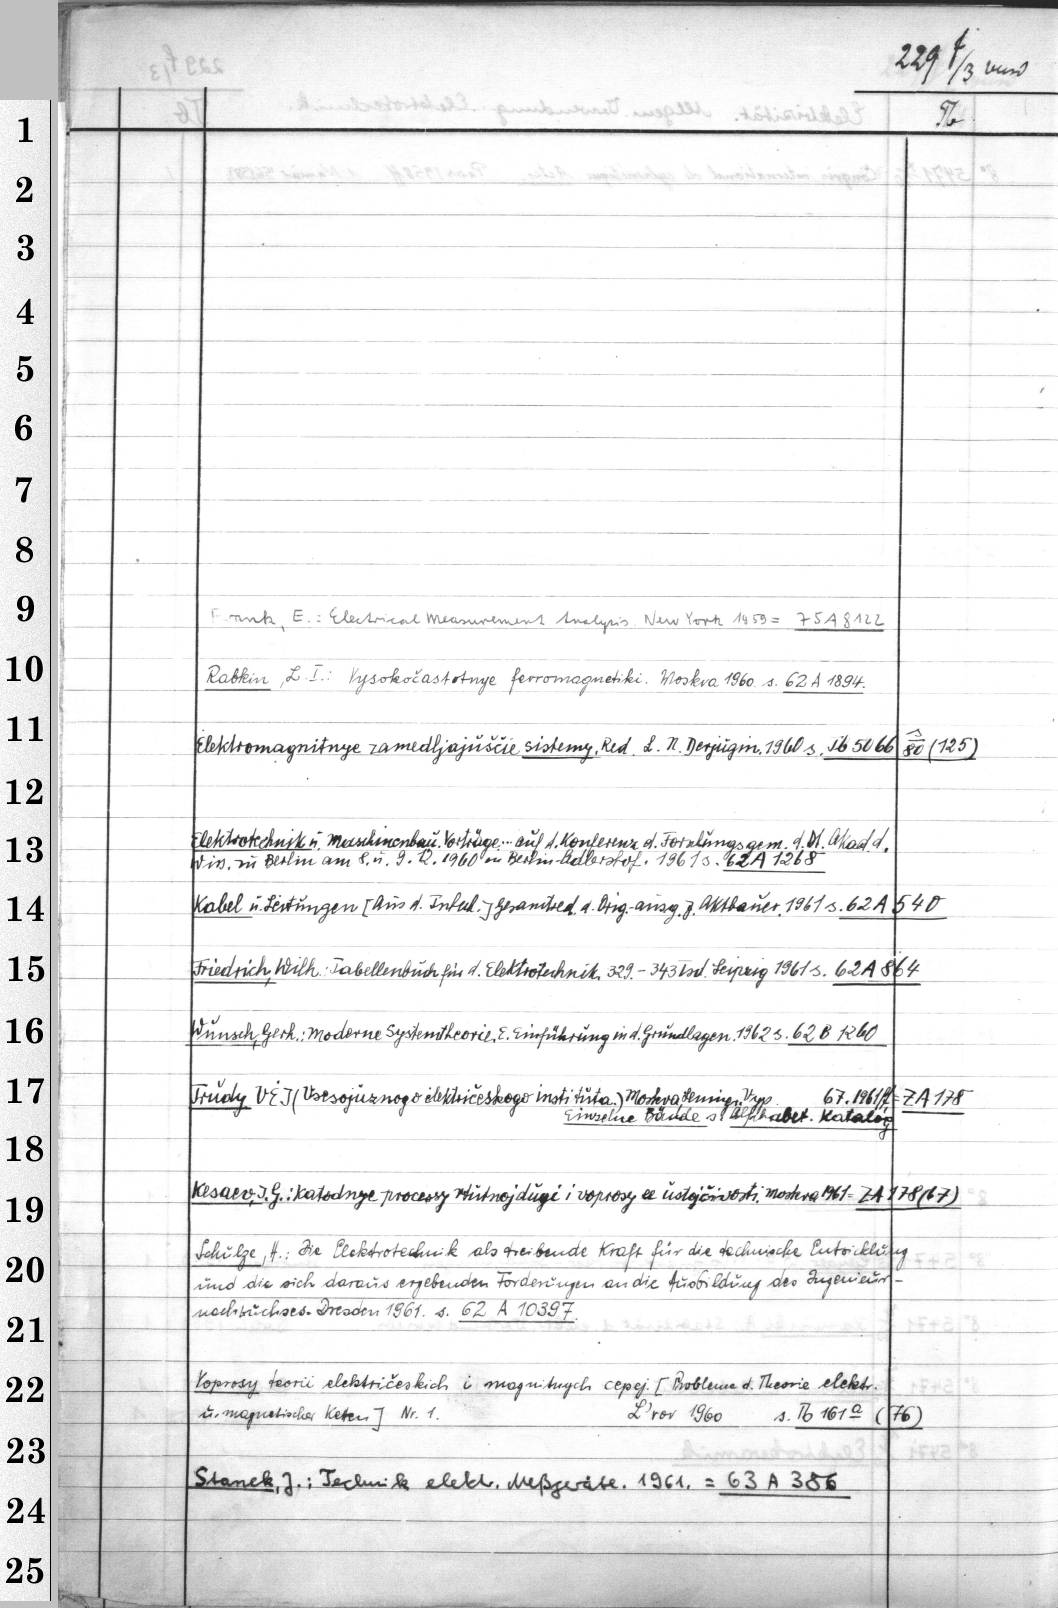 229 f/3
Tb
1
2
3
4
5
6
7
8
9
Frank, E.: Electrical Measurement Analysis. New York 1959 = 75 A 8122
10
Rabkin, L. I.: Vysokočastotnye ferromagnetiki. Moskva 1960. s. 62 A 1894.
11
Elektromagnitnye zamedljajuščie sistemy, Red. L. N. Derjugin. 1960 s. Tb 5066 80 (125)
12
Elektrotechnik u. Maschinenbau. Vorträge... auf d. Konferenz d. Forschungsgem. d. Dt. Akad. d.
13
Wiss. zu Berlin am 8. u. 9. 12. 1960 in Berlin-Adlershof. 1961 s. 62 A 1268
14
Kabel u. Leitungen [Aus d. Tschech.] Gesamtred. d. Orig.-ausg. J. Aktbauer. 1961 s. 62 A 540
15
Friedrich, Wilh.: Tabellenbuch für d. Elektrotechnik. 329.-343 Tsd. Leipzig 1961 s. 62 A 864
16
Wunsch, Gerh.: Moderne Systemtheorie. E. Einführung in d. Grundlagen. 1962 s. 62 B 1260
17
Trudy VEJ (Vsesojuznogo električeskogo instituta.) Moskva Lening. Vyp. 67. 1961 ff = ZA 178
Einzelne Bände s. Alphabet. Katalog
18
Kesaev, J. G.: Katodnye processy rtutnoj dugi i voprosy ee ustojčivosti. Moskva 1961 = ZA 178 (67)
19
Schulze, H.: Die Elektrotechnik als treibende Kraft für die technische Entwicklung
20
und die sich daraus ergebenden Forderungen an die Ausbildung des Ingenieur-
nachwuchses. Dresden 1961. s. 62 A 10397.
21
22
Voprosy teorii električeskich i magnitnych cepej. [Probleme d. Theorie elektr.
u. magnetischer Ketten] Nr. 1. L'vov 1960 s. Tb 161 a (76)
23
Stanek, J.: Technik elektr. Meßgeräte. 1961. = 63 A 386
24
25